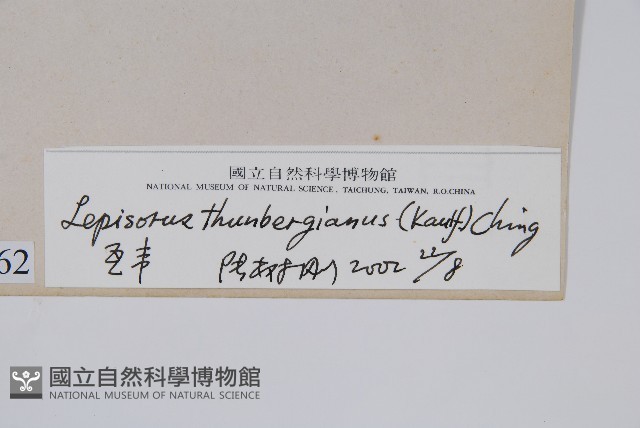 國立自然科學博物館
NATIONAL MUSEUM OF NATURAL SCIENCE, TAICHUNG, TAIWAN, R.O.CHINA
Lepisorus thunbergianus (Kaulf.) Ching
瓦韋 2002 22/8
62
國立自然科學博物館
NATIONAL MUSEUM OF NATURAL SCIENCE